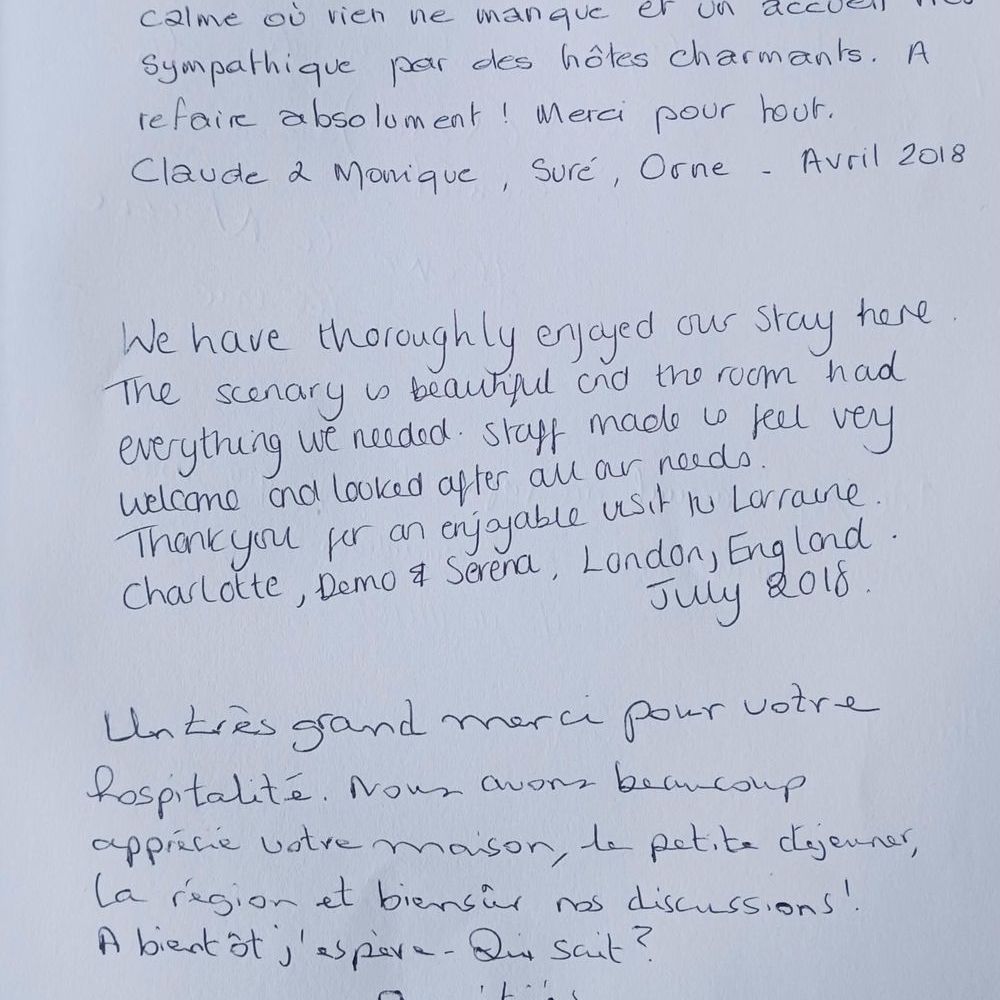 calme où rien ne manque et un accueil
sympathique par des hôtes charmants. A
refaire absolument ! Merci pour tout.
Claude & Monique, Suré, Orne - Avril 2018
We have thoroughly enjoyed our stay here.
The scenary is beautiful and the room had
everything we needed. Staff made us feel very
welcome and looked after all our needs.
Thankyou for an enjoyable visit to Lorraine.
Charlotte, Demo & Serena, London, England.
July 2018.
Un très grand merci pour votre
hospitalité. Nous avons beaucoup
apprécié votre maison, le petite dejeuner,
la région et biensûr nos discussions!
A bientôt j'espère - Qui sait?